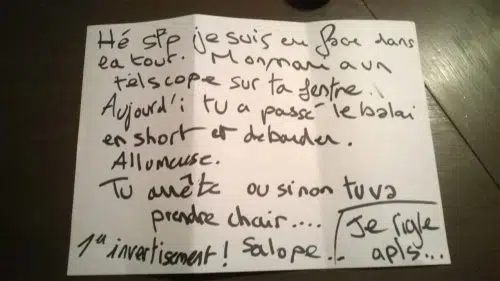 Hé stp je suis en face dans
la tour. Mon mari a un
télscope sur ta fentre.
Aujourd'i tu a passé le balai
en short et debarder.
Allumeuse.
Tu arrête ou sinon tu va
prendre chair....
1er invertisement! Salope...
Je rigle
apls...